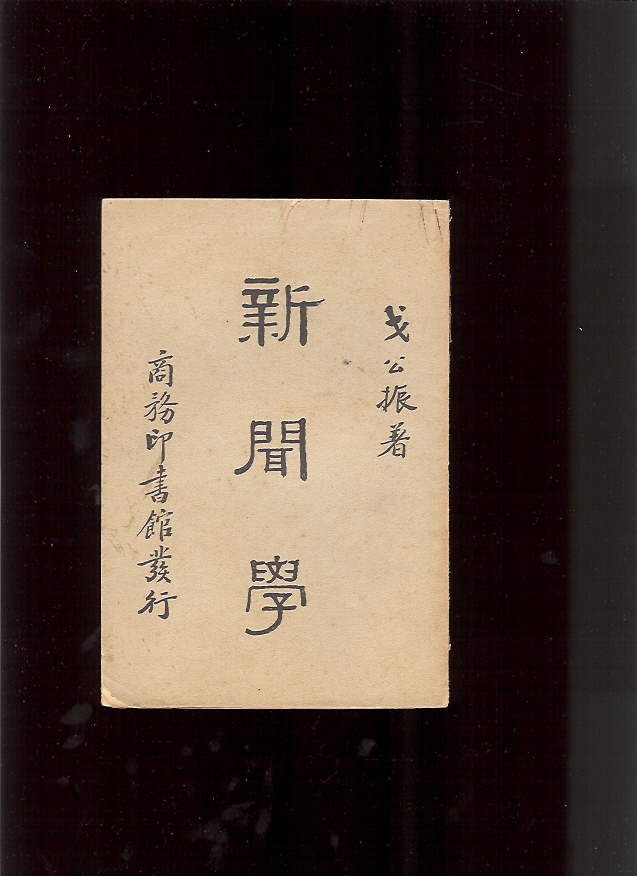 戈公振著
新聞學
商務印書館發行